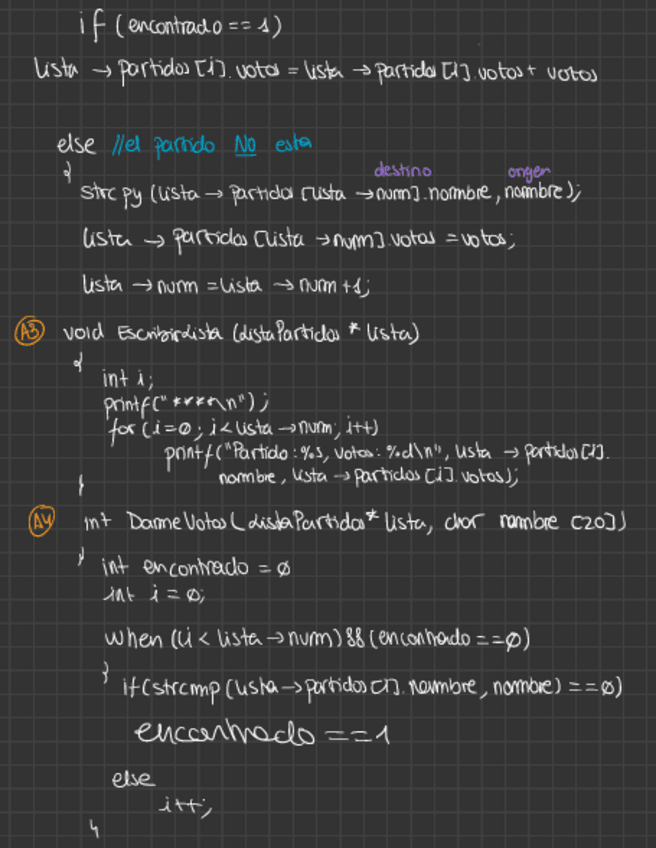 if (encontrado == 1)
lista → partidos [i].votos = lista → partidos [i].votos + votos
else //el partido NO esta
{
destino origen
strcpy (lista → partidos [lista → num].nombre, nombre);
lista → partidos [lista → num].votos = votos;
lista → num = lista → num + 1;
A3 void EscribirLista (ListaPartidos * lista)
{
int i;
printf("****\n");
for (i=0; i<lista → num; i++)
printf("Partido: %s, votos: %d\n", lista → partidos [i].
nombre, lista → partidos [i].votos);
}
A4 int DameVotos (ListaPartidos* lista, char nombre [20])
{
int encontrado = 0
int i = 0;
when ((i < lista → num) && (encontrado == 0)
}
if(strcmp (lista → partidos [i].nombre, nombre) == 0)
encontrado == 1
else
i++;
}